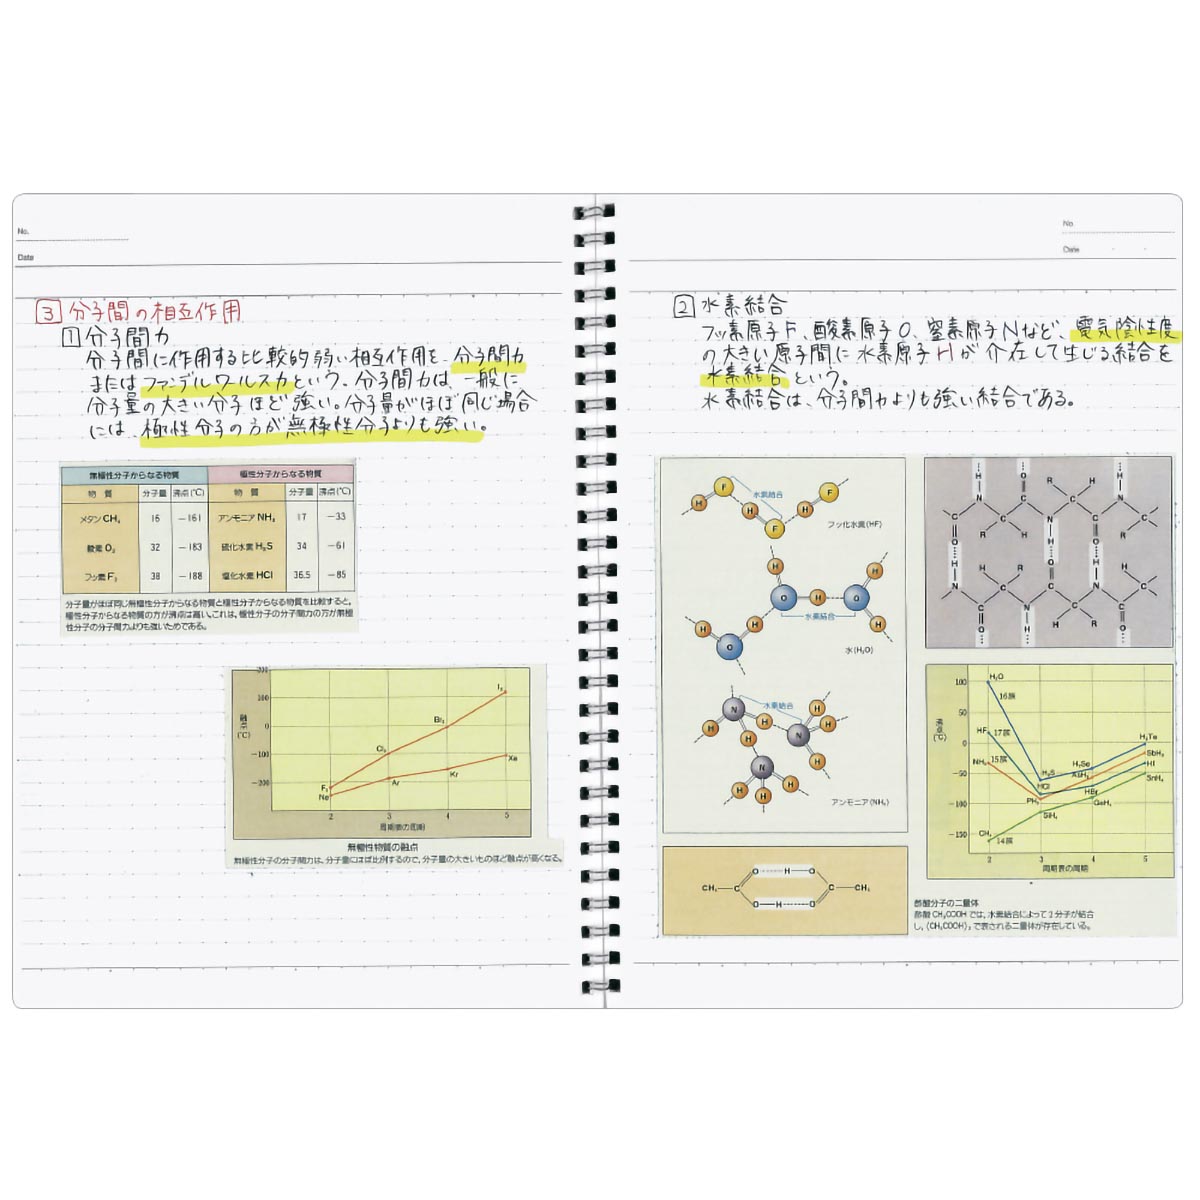 No.
Date
3 分子間の相互作用
1 分子間力
分子間に作用する比較的弱い相互作用を、分子間力
またはファンデルワールス力という。分子間力は、一般に
分子量の大きい分子ほど強い。分子量がほぼ同じ場合
には、極性分子の方が無極性分子よりも強い。
無極性分子からなる物質 極性分子からなる物質
物質 分子量 沸点(℃) 物質 分子量 沸点(℃)
メタンCH₄ 16 −161 アンモニアNH₃ 17 −33
酸素O₂ 32 −183 硫化水素H₂S 34 −61
フッ素F₂ 38 −188 塩化水素HCl 36.5 −85
分子量がほぼ同じ無極性分子からなる物質と極性分子からなる物質を比較すると、
極性分子からなる物質の方が沸点は高い。これは、極性分子の分子間力の方が無極
性分子の分子間力よりも強いためである。
200
100
0
−100
−200
融点
(℃)
I₂
Br₂
Cl₂
Xe
Kr
Ar
F₂
Ne
2 3 4 5
周期表の周期
無極性物質の融点
無極性分子の分子間力は、分子量にほぼ比例するので、分子量の大きいものほど融点が高くなる。
No.
Date
2 水素結合
フッ素原子F、酸素原子O、窒素原子Nなど、電気陰性度
の大きい原子間に水素原子Hが介在して生じる結合を
水素結合という。
水素結合は、分子間力よりも強い結合である。
F F
水素結合
H H H
F
フッ化水素(HF)
H H
O H O
水素結合
H H H
O
水(H₂O)
N
水素結合
H
H H H
N
H H
N
H H H
アンモニア(NH₃)
CH₃ C O H O C CH₃
O H O
100
50
0
−50
−100
−150
沸点
(℃)
H₂O
16族
HF
17族
NH₃
15族
CH₄
14族
H₂S
HCl
PH₃
SiH₄
H₂Se
AsH₃
HBr
GeH₄
H₂Te
SbH₃
HI
SnH₄
2 3 4 5
周期表の周期
酢酸分子の二量体
酢酸CH₃COOHでは、水素結合によって2分子が結合
し、(CH₃COOH)₂で表される二量体が存在している。